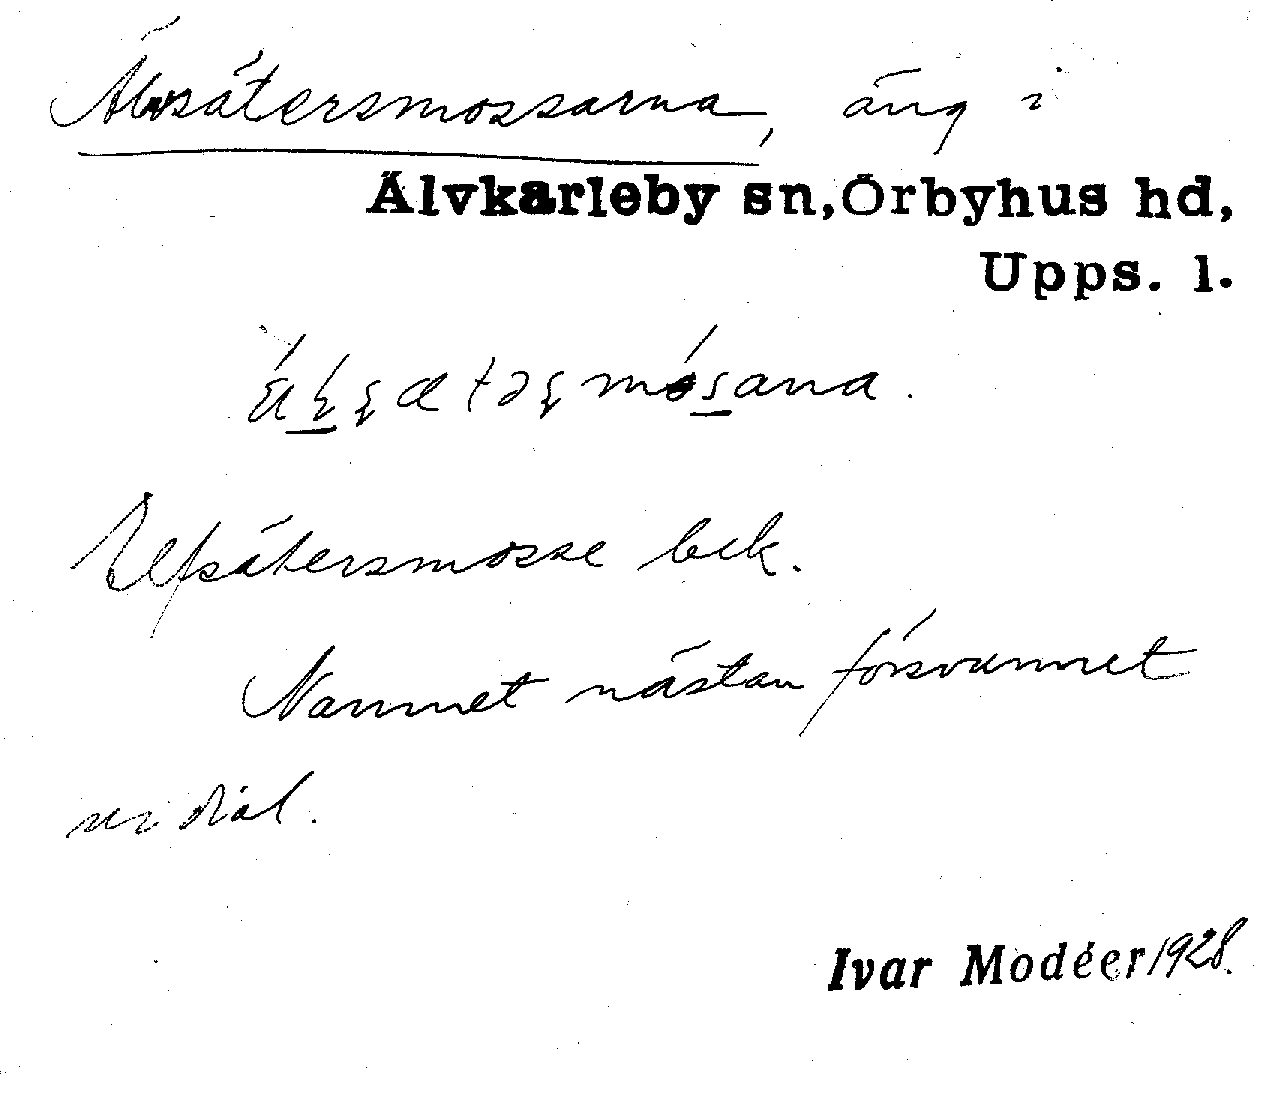 Älvsätersmossarna, äng i
Älvkarleby sn, Örbyhus hd,
Upps. l.
Elfsätersmosse bek.
Namnet nästan försvunnet
ur dial.
Ivar Modéer 1928.